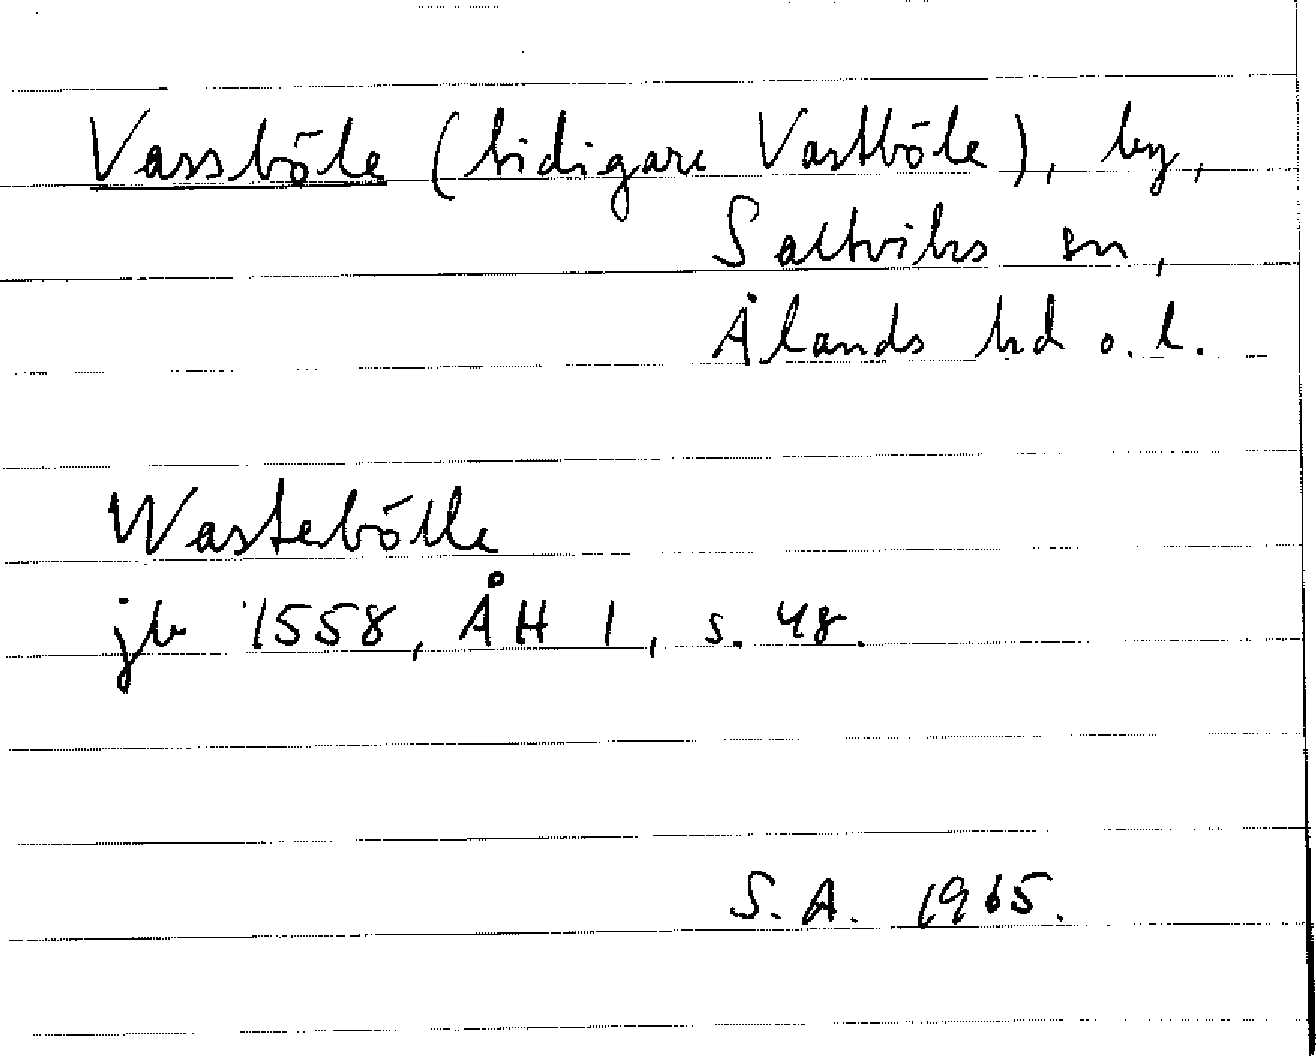 Vassböle (tidigare Vastböle), by,
Saltviks sn,
Ålands hd o. l.
Wastebölle
jb 1558, ÅH 1, s. 48.
S.A. 1965.